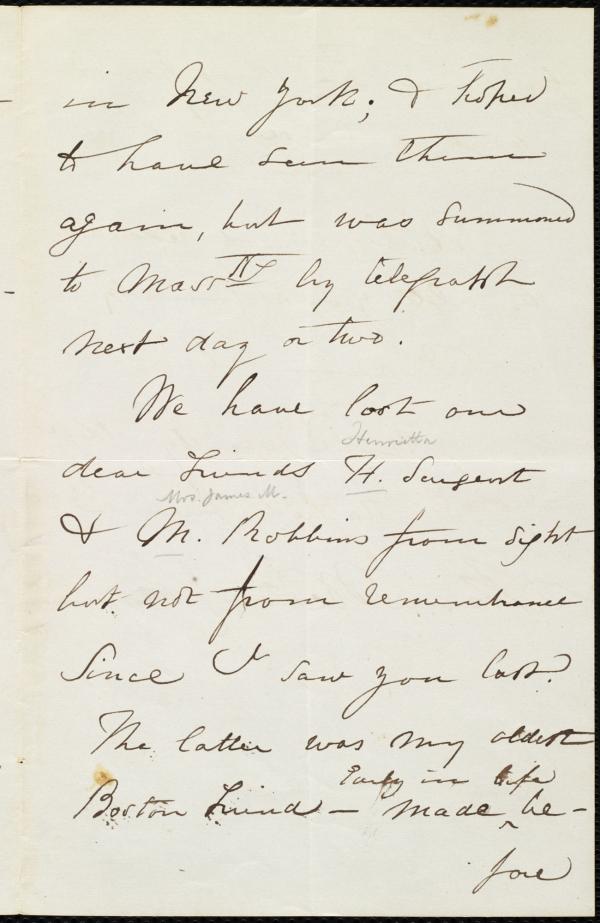 in New York; & hoped
to have seen them
again, but was summoned
to Mass by telegraph
next day or two.
We have lost our
Henrietta
dear friends H. Sargent
Mrs. James M.
& M. Robbins from sight
but not from remembrance
Since I saw you last.
The latter was my oldest
Early in life
Boston friend — made ^ be-
fore